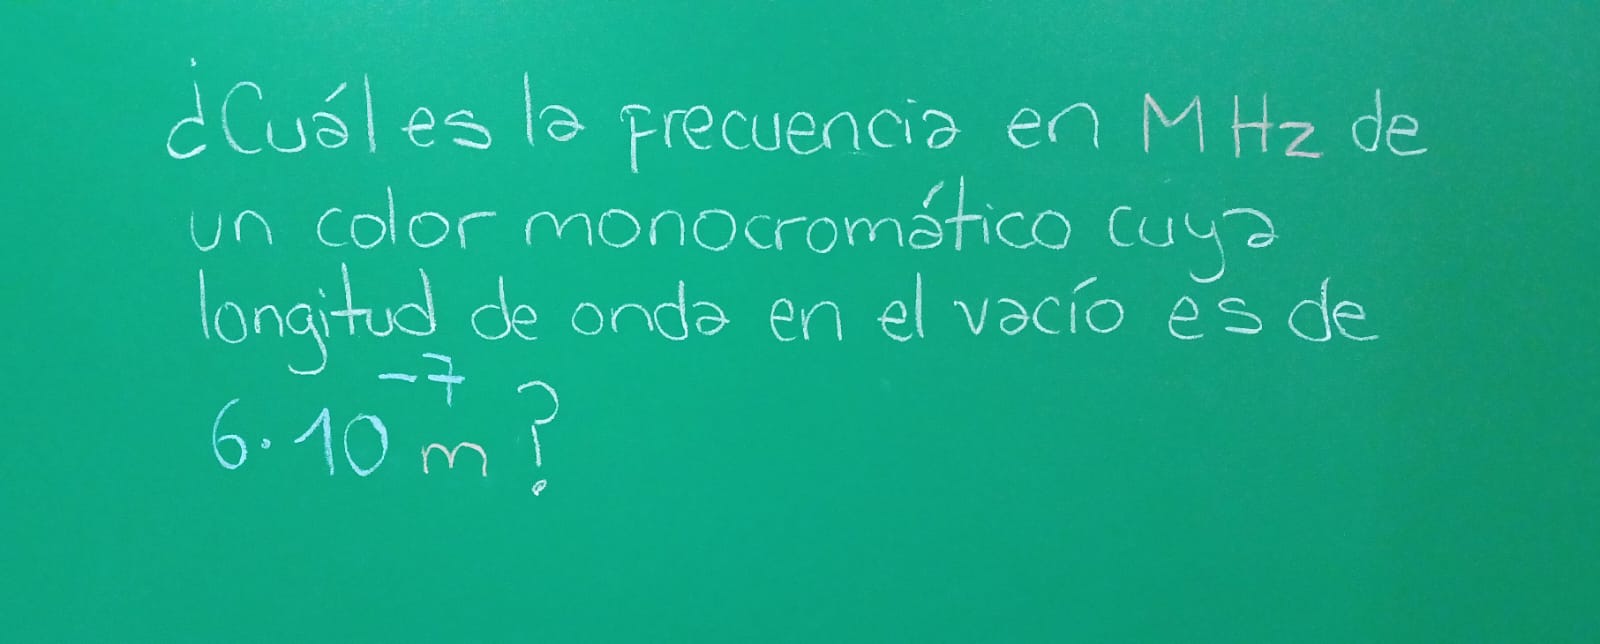 ¿Cuál es la frecuencia en MHz de
un color monocromático cuya
longitud de onda en el vacío es de
6·10⁻⁷ m?